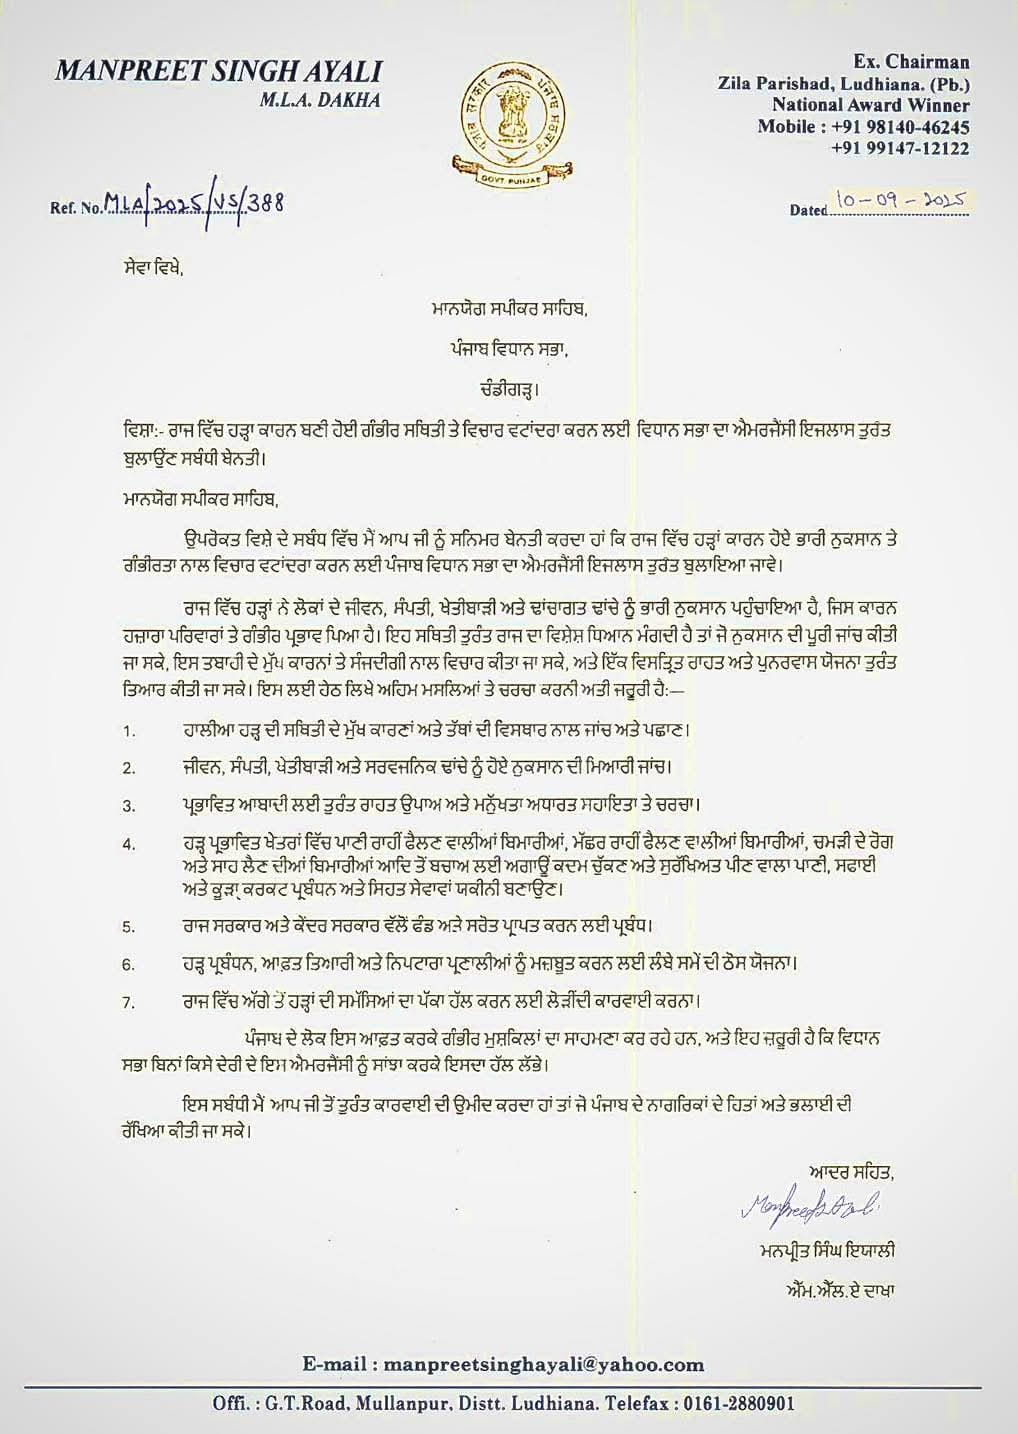 MANPREET SINGH AYALI
M.L.A. DAKHA
Ex. Chairman
Zila Parishad, Ludhiana. (Pb.)
National Award Winner
Mobile : +91 98140-46245
+91 99147-12122
GOVT. PUNJAB
Ref. No. MLA/2025/VS/388
Dated 10-09-2025
ਸੇਵਾ ਵਿਖੇ,
ਮਾਨਯੋਗ ਸਪੀਕਰ ਸਾਹਿਬ,
ਪੰਜਾਬ ਵਿਧਾਨ ਸਭਾ,
ਚੰਡੀਗੜ੍ਹ।
ਵਿਸ਼ਾ:- ਰਾਜ ਵਿੱਚ ਹੜ੍ਹਾ ਕਾਰਨ ਬਣੀ ਹੋਈ ਗੰਭੀਰ ਸਥਿਤੀ ਤੇ ਵਿਚਾਰ ਵਟਾਂਦਰਾ ਕਰਨ ਲਈ ਵਿਧਾਨ ਸਭਾ ਦਾ ਐਮਰਜੈਂਸੀ ਇਜਲਾਸ ਤੁਰੰਤ
ਬੁਲਾਉਂਣ ਸਬੰਧੀ ਬੇਨਤੀ।
ਮਾਨਯੋਗ ਸਪੀਕਰ ਸਾਹਿਬ,
ਉਪਰੋਕਤ ਵਿਸ਼ੇ ਦੇ ਸਬੰਧ ਵਿੱਚ ਮੈਂ ਆਪ ਜੀ ਨੂੰ ਸਨਿਮਰ ਬੇਨਤੀ ਕਰਦਾ ਹਾਂ ਕਿ ਰਾਜ ਵਿੱਚ ਹੜ੍ਹਾਂ ਕਾਰਨ ਹੋਏ ਭਾਰੀ ਨੁਕਸਾਨ ਤੇ
ਗੰਭੀਰਤਾ ਨਾਲ ਵਿਚਾਰ ਵਟਾਂਦਰਾ ਕਰਨ ਲਈ ਪੰਜਾਬ ਵਿਧਾਨ ਸਭਾ ਦਾ ਐਮਰਜੈਂਸੀ ਇਜਲਾਸ ਤੁਰੰਤ ਬੁਲਾਇਆ ਜਾਵੇ।
ਰਾਜ ਵਿੱਚ ਹੜ੍ਹਾਂ ਨੇ ਲੋਕਾਂ ਦੇ ਜੀਵਨ, ਸੰਪਤੀ, ਖੇਤੀਬਾੜੀ ਅਤੇ ਢਾਂਚਾਗਤ ਢਾਂਚੇ ਨੂੰ ਭਾਰੀ ਨੁਕਸਾਨ ਪਹੁੰਚਾਇਆ ਹੈ, ਜਿਸ ਕਾਰਨ
ਹਜ਼ਾਰਾ ਪਰਿਵਾਰਾਂ ਤੇ ਗੰਭੀਰ ਪ੍ਰਭਾਵ ਪਿਆ ਹੈ। ਇਹ ਸਥਿਤੀ ਤੁਰੰਤ ਰਾਜ ਦਾ ਵਿਸ਼ੇਸ਼ ਧਿਆਨ ਮੰਗਦੀ ਹੈ ਤਾਂ ਜੋ ਨੁਕਸਾਨ ਦੀ ਪੂਰੀ ਜਾਂਚ ਕੀਤੀ
ਜਾ ਸਕੇ, ਇਸ ਤਬਾਹੀ ਦੇ ਮੁੱਖ ਕਾਰਨਾਂ ਤੇ ਸੰਜਦੀਗੀ ਨਾਲ ਵਿਚਾਰ ਕੀਤਾ ਜਾ ਸਕੇ, ਅਤੇ ਇੱਕ ਵਿਸਤ੍ਰਿਤ ਰਾਹਤ ਅਤੇ ਪੁਨਰਵਾਸ ਯੋਜਨਾ ਤੁਰੰਤ
ਤਿਆਰ ਕੀਤੀ ਜਾ ਸਕੇ। ਇਸ ਲਈ ਹੇਠ ਲਿਖੇ ਅਹਿਮ ਮਸਲਿਆਂ ਤੇ ਚਰਚਾ ਕਰਨੀ ਅਤੀ ਜਰੂਰੀ ਹੈ:—
1. ਹਾਲੀਆ ਹੜ੍ਹ ਦੀ ਸਥਿਤੀ ਦੇ ਮੁੱਖ ਕਾਰਣਾਂ ਅਤੇ ਤੱਥਾਂ ਦੀ ਵਿਸਥਾਰ ਨਾਲ ਜਾਂਚ ਅਤੇ ਪਛਾਣ।
2. ਜੀਵਨ, ਸੰਪਤੀ, ਖੇਤੀਬਾੜੀ ਅਤੇ ਸਰਵਜਨਿਕ ਢਾਂਚੇ ਨੂੰ ਹੋਏ ਨੁਕਸਾਨ ਦੀ ਮਿਆਰੀ ਜਾਂਚ।
3. ਪ੍ਰਭਾਵਿਤ ਆਬਾਦੀ ਲਈ ਤੁਰੰਤ ਰਾਹਤ ਉਪਾਅ ਅਤੇ ਮਨੁੱਖਤਾ ਅਧਾਰਤ ਸਹਾਇਤਾ ਤੇ ਚਰਚਾ।
4. ਹੜ੍ਹ ਪ੍ਰਭਾਵਿਤ ਖੇਤਰਾਂ ਵਿੱਚ ਪਾਣੀ ਰਾਹੀਂ ਫੈਲਣ ਵਾਲੀਆਂ ਬਿਮਾਰੀਆਂ, ਮੱਛਰ ਰਾਹੀਂ ਫੈਲਣ ਵਾਲੀਆਂ ਬਿਮਾਰੀਆਂ, ਚਮੜੀ ਦੇ ਰੋਗ
ਅਤੇ ਸਾਹ ਲੈਣ ਦੀਆਂ ਬਿਮਾਰੀਆਂ ਆਦਿ ਤੋਂ ਬਚਾਅ ਲਈ ਅਗਾਊਂ ਕਦਮ ਚੁੱਕਣ ਅਤੇ ਸੁਰੱਖਿਅਤ ਪੀਣ ਵਾਲਾ ਪਾਣੀ, ਸਫਾਈ
ਅਤੇ ਕੂੜਾ ਕਰਕਟ ਪ੍ਰਬੰਧਨ ਅਤੇ ਸਿਹਤ ਸੇਵਾਵਾਂ ਯਕੀਨੀ ਬਣਾਉਣ।
5. ਰਾਜ ਸਰਕਾਰ ਅਤੇ ਕੇਂਦਰ ਸਰਕਾਰ ਵੱਲੋਂ ਫੰਡ ਅਤੇ ਸਰੋਤ ਪ੍ਰਾਪਤ ਕਰਨ ਲਈ ਪ੍ਰਬੰਧ।
6. ਹੜ੍ਹ ਪ੍ਰਬੰਧਨ, ਆਫ਼ਤ ਤਿਆਰੀ ਅਤੇ ਨਿਪਟਾਰਾ ਪ੍ਰਣਾਲੀਆਂ ਨੂੰ ਮਜ਼ਬੂਤ ਕਰਨ ਲਈ ਲੰਬੇ ਸਮੇਂ ਦੀ ਠੋਸ ਯੋਜਨਾ।
7. ਰਾਜ ਵਿੱਚ ਅੱਗੇ ਤੋਂ ਹੜ੍ਹਾਂ ਦੀ ਸਮੱਸਿਆਂ ਦਾ ਪੱਕਾ ਹੱਲ ਕਰਨ ਲਈ ਲੋੜੀਂਦੀ ਕਾਰਵਾਈ ਕਰਨਾ।
ਪੰਜਾਬ ਦੇ ਲੋਕ ਇਸ ਆਫ਼ਤ ਕਰਕੇ ਗੰਭੀਰ ਮੁਸ਼ਕਿਲਾਂ ਦਾ ਸਾਹਮਣਾ ਕਰ ਰਹੇ ਹਨ, ਅਤੇ ਇਹ ਜ਼ਰੂਰੀ ਹੈ ਕਿ ਵਿਧਾਨ
ਸਭਾ ਬਿਨਾਂ ਕਿਸੇ ਦੇਰੀ ਦੇ ਇਸ ਐਮਰਜੈਂਸੀ ਨੂੰ ਸਾਂਝਾ ਕਰਕੇ ਇਸਦਾ ਹੱਲ ਲੱਭੇ।
ਇਸ ਸਬੰਧੀ ਮੈਂ ਆਪ ਜੀ ਤੋਂ ਤੁਰੰਤ ਕਾਰਵਾਈ ਦੀ ਉਮੀਦ ਕਰਦਾ ਹਾਂ ਤਾਂ ਜੋ ਪੰਜਾਬ ਦੇ ਨਾਗਰਿਕਾਂ ਦੇ ਹਿਤਾਂ ਅਤੇ ਭਲਾਈ ਦੀ
ਰੱਖਿਆ ਕੀਤੀ ਜਾ ਸਕੇ।
ਆਦਰ ਸਹਿਤ,
ਮਨਪ੍ਰੀਤ ਸਿੰਘ ਇਯਾਲੀ
ਐੱਮ.ਐੱਲ.ਏ ਦਾਖਾ
E-mail : manpreetsinghayali@yahoo.com
Offi. : G.T.Road, Mullanpur, Distt. Ludhiana. Telefax : 0161-2880901